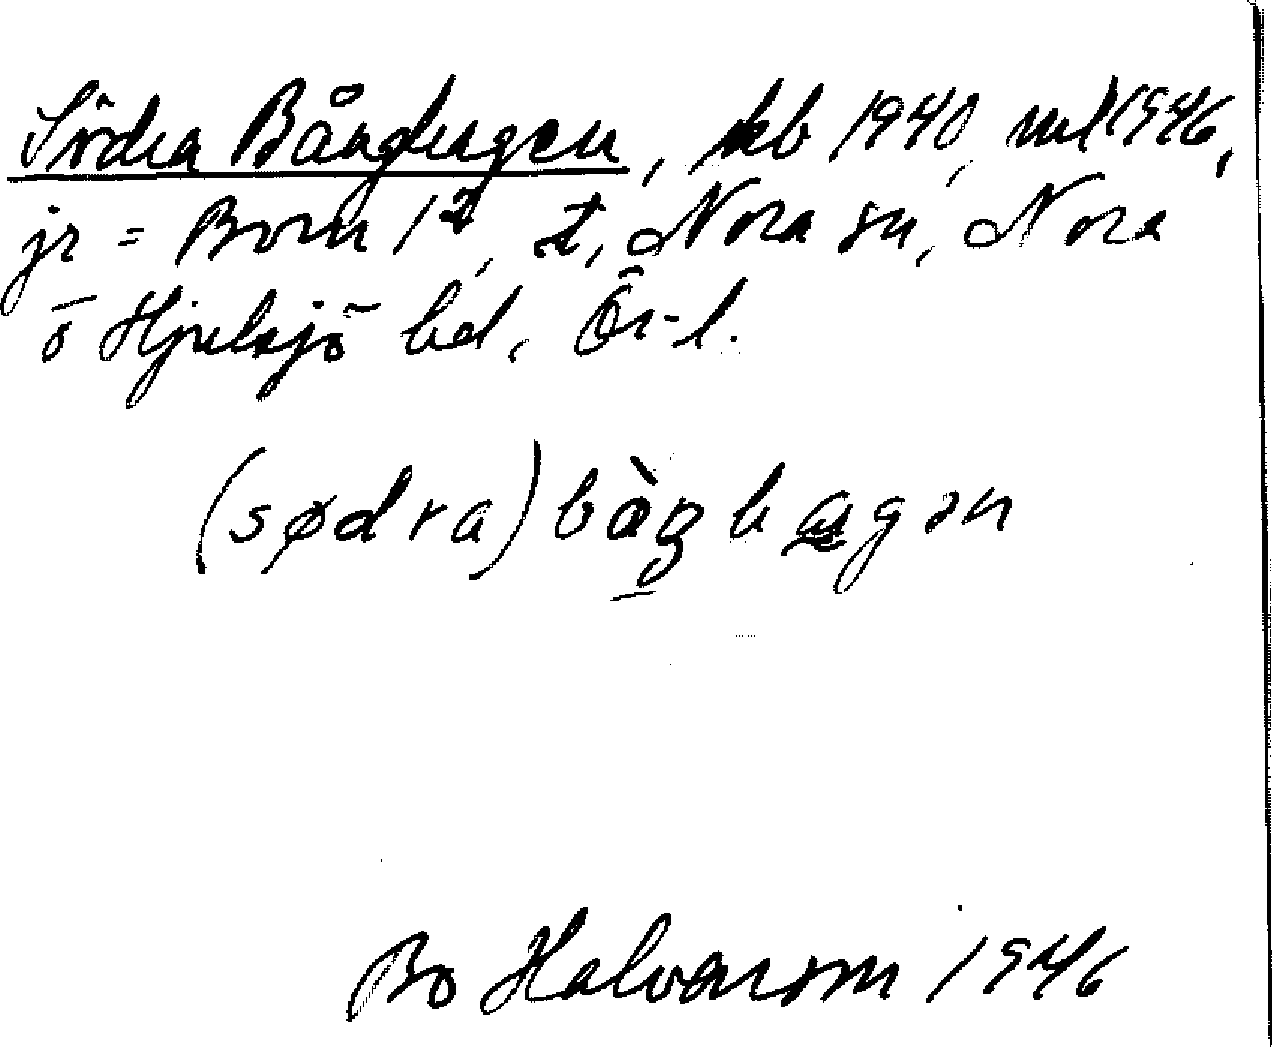 Södra Bånghagen, kb 1940, ml 1946,
jr = Born 1², t, Nora sn, Nora
o Hjulsjö bd, Ör-l.
(sødra) bàŋhagən
Bo Halvarson 1946